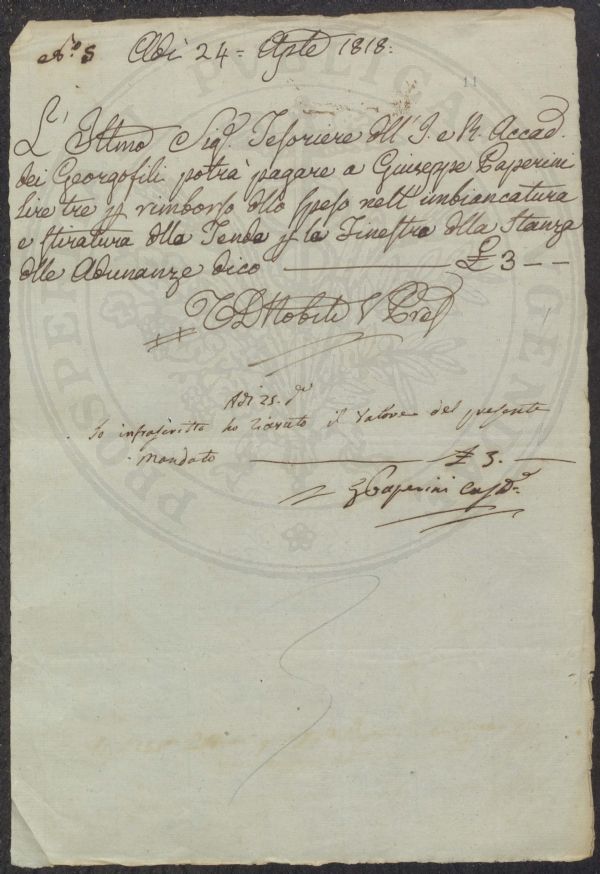 N.º 5 Adì 24 = Aple 1818.
11
L' Illmo Sig.r Tesoriere dll' I. e R. Accad.
dei Georgofili potrà pagare a Giuseppe Paperini
lire tre p rimborso dlle spese nell' imbiancatura
e stiratura dlle Tende p le Finestre dlla Stanza
dlle Adunanze dico £ 3 — —
V Pre
Adi 25. do
Io infrascritto ho ricevuto il valore del presente
Mandato £ 3. —
G Paperini
PROSPERITÀ PUBBLICA